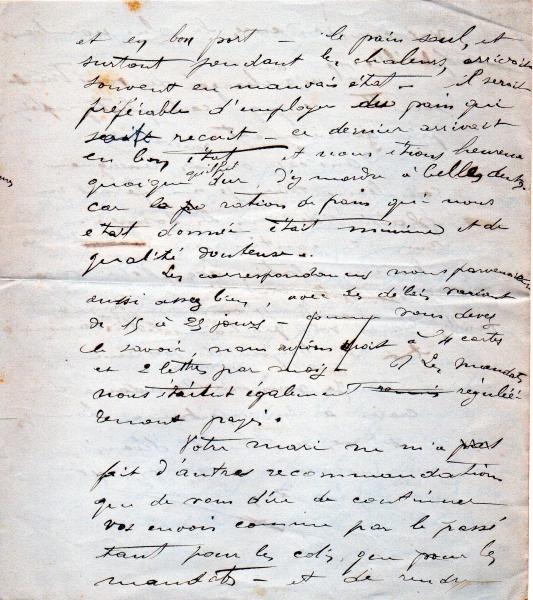 et en bon port — le pain seul, et
surtout pendant les chaleurs, arrivait
souvent en mauvais état — il serait
préférable d'employer du pain qui
soit recuit — ce dernier arrivait
en bon état et nous étions heureux
quoique qu'il fut dur d'y mordre à belles dents
car la ration de pain qui nous
etait donnée était minime et de
qualité douteuse.
Les correspondances nous parvenaient
aussi assez bien, avec des délais variant
de 15 à 25 jours — comme vous devez
le savoir, nous avions droit à 4 cartes
et 2 lettres par mois — Les mandats
nous étaient également réguliè
rement payés.
Votre mari ne m'a pas
fait d'autres recommandations
que de vous dire de continuer
vos envois comme par le passé
tant pour les colis que pour les
mandats — et de rendre